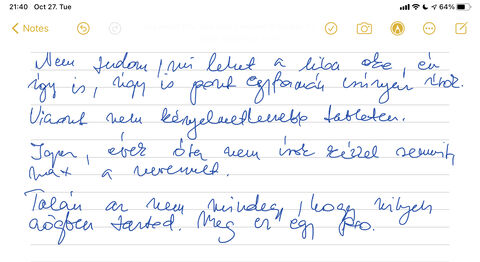 21:40 Oct 27. Tue
64%
Notes
Nem tudom, mi lehet a hiba oka, én
így is, úgy is pont egyformán csúnyán írok.
Viszont nem kényelmetlenebb tableten.
Igaz, évek óta nem írok kézzel semmit,
max a nevemet.
Talán az nem mindegy, hogy milyen
szögben tartod. Meg ez egy Pro.